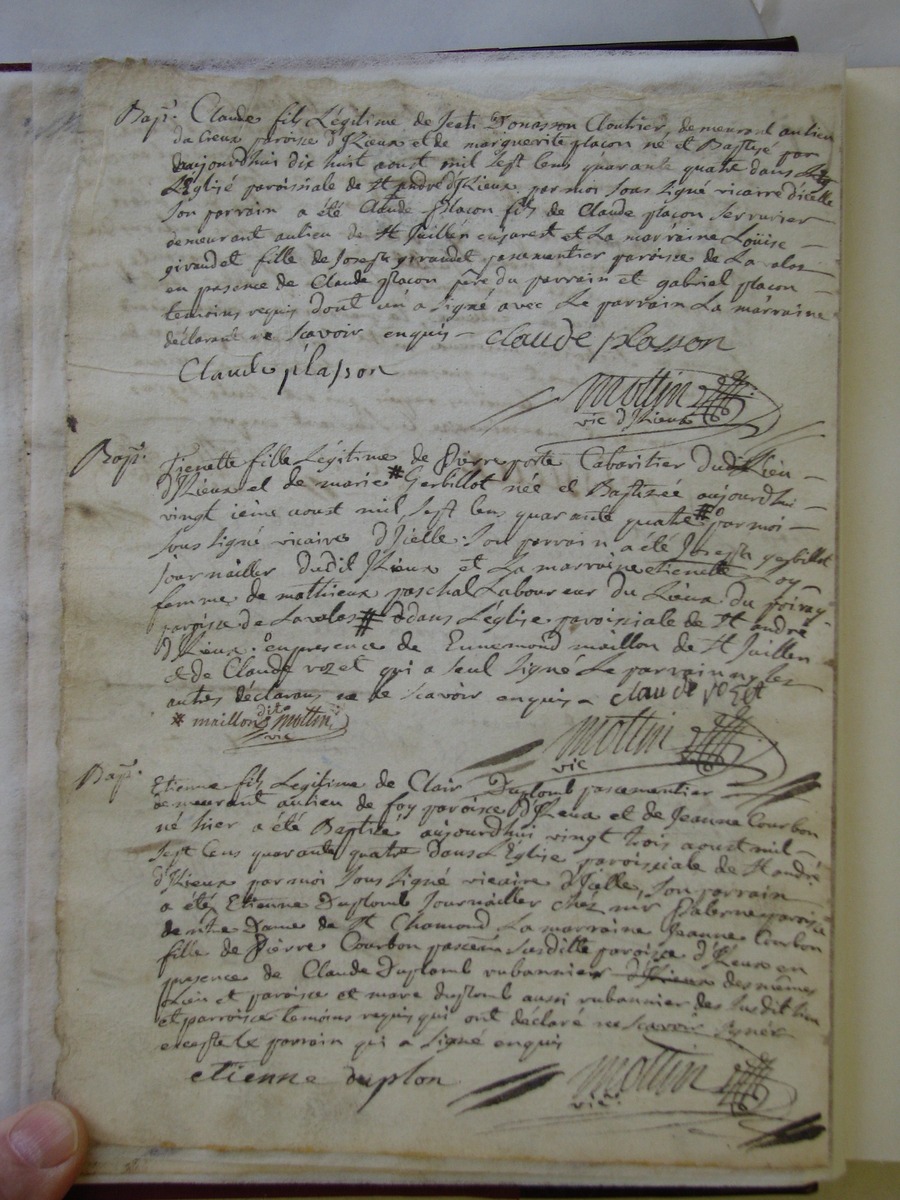 Bap.t Claude fils Légitime de Jean Donasson Cloutier, demeurant au lieu
du Creux paroise d'Izieux et de marguerite placon né et Baptisé par
aujourdhui dix huit aoust mil sept cens quarante quatre dans
L'Eglise paroissiale de St andré d'Izieux par moi sous signé vicaire d'icelle
son parrain a été Claude placon fils de Claude placon serrurier
demeurant au lieu de St Juillen en jarest et La marraine Loüise
giraudet fille de Joseph giraudet passamentier paroise de La valas
en presence de Claude placon père du parrain et gabriel placon
temoins requis dont un a signé avec Le parrain La marraine
déclarant ne scavoir enquis claude plasson
Claude plasson
mottin
vic d'Izieux
Bap.t Etienette fille Légitime de Pierre porte Cabaritier Dudit Lieu
d'Izieux et de marie # Gerbillot née et Baptisée aujourdhui
vingt ième aoust mil sept cens quarante quatre # par moi
sous signé vicaire d'icelle son parrain a été Joseph gerbillot
journallier dudit Izieux et La marraine etienette foy
femme de mathieux paschal Laboureur du Lieux du poiray
paroise de Lavalas # dans L'église paroissiale de St andré
d'Izieux en presence de Ennemond maillon de St Juillen
et de Claude rozet qui a seul signé Le parrain ny les
autres déclarans ne le scavoir enquis claude rozet
* maillon dit mottin
vic
mottin
vic
Bap.t Etienne fils Legitime de Clair Duplomb passementier
demeurant au lieu de foy paroise d'Izieux et de Jeanne Courbon
né hier a été Baptisé aujourdhui vingt trois aoust mil
sept cens quarante quatre dans L'Eglise paroissiale de St andré
d'Izieux par moi sous signé vicaire d'icelle, son parrain
a été Etienne Duplomb Journallier chez mr Palerne paroise
de ntre Dame de St Chamond La marraine Jeanne Courbon
fille de Pierre Courbon passem susditte paroise d'Izieux en
presence de Claude Duplomb rubannier des mêmes
Lieu et paroise et marc duplomb aussi rubannier des susdit lieu
et parroise temoins requis qui ont déclaré ne scavoir signer
excepté le parrain qui a signé enquis
etienne duplon
mottin
vic.